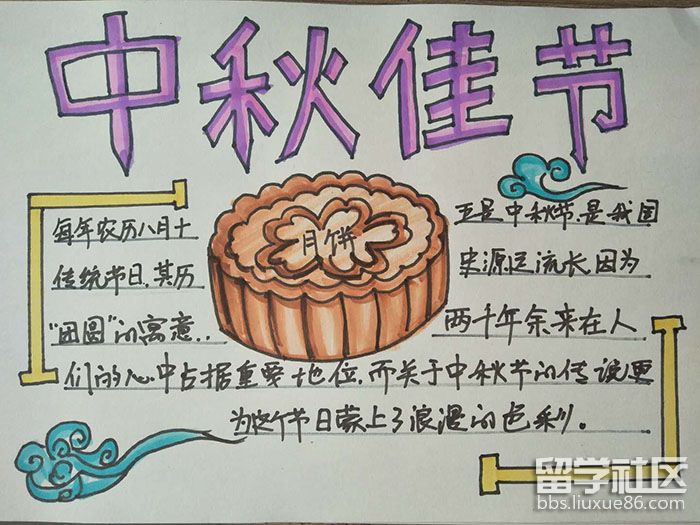 中秋佳节
月饼
每年农历八月十五是中秋节.是我国
传统节日.其历史源远流长.因为
"团圆"的寓意..两千年余来在人
们的心中占据重要地位.而关于中秋节的传说更
为这个节日蒙上了浪漫的色彩。
留学社区
bbs.liuxue86.com